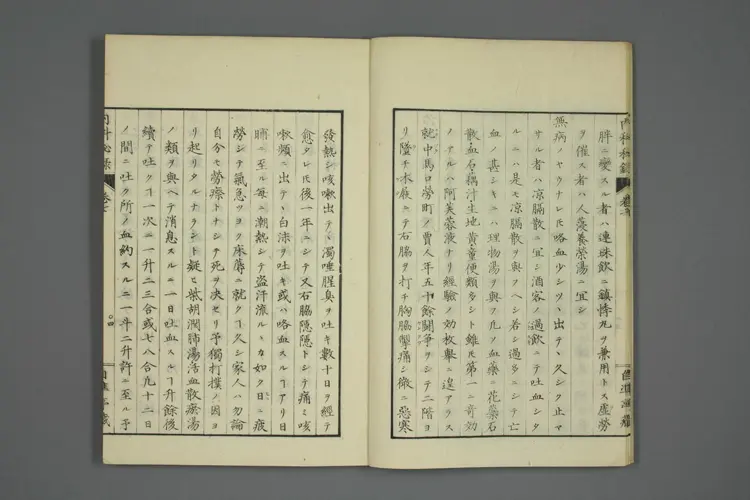 脾ニ變スル者ハ連珠飲ニ鎮悸丸ヲ兼用トス虚勞
ヲ催ス者ハ人參養榮湯ニ宜シ
無病ノヤウナレ𪜈咯血少シツヽ出テヽ久シク止マ
サル者ハ凉膈散ニ宜シ酒客ノ過飲ニテ吐血シタ
ルニハ是モ凉膈散ヲ與フヘシ若シ過多ニシテ亡
血ノ甚シキニハ理物湯ヲ與フ凡ソ血藥ニ花蘂石
散血石藕汁生地黄童便類多シト雖𪜈第一ニ奇
ノアルハ阿芙蓉液ナリ經驗ノ効枚擧ニ遑アラス
就中馬口勞町ノ賈人年五十餘鬪爭ヲシテ二階ヨ
リ墮チ木展ニテ石脇ヲ打チ胸脇攣痛シ微ニ惡寒
發熱シ咳嗽出テヽ濁唾腥臭ヲ吐キ數十日ヲ經テ
愈タレ𪜈後一年ニシテ又石脇隱隱トシテ痛ミ咳
嗽頻ニ出テヽ白沫ヲ吐キ或ハ咯血スルヿアリ日
晡ニ至ル每ニ潮熱シテ盜汗流ルヽカ如ク日ニ疲
勞シテ氣急ツヨク床蓐ニ就クヿ久シ家人ハ勿論
自分モ勞瘵トナシテ死ヲ决セリ予獨打撲ノ因ヨ
リ起リタルナラント疑ヒ柴胡澗肺湯活血散瘀湯
ノ類ヲ與ヘテ消息スルニ一日吐血スルヿ升餘後
續テ吐クヿ一次ニ一升二三合或七八合九十二日
ノ間ニ吐ク所ノ血約スルニ二斗二升許ニ至ル予
内科秘録
卷七
〇四